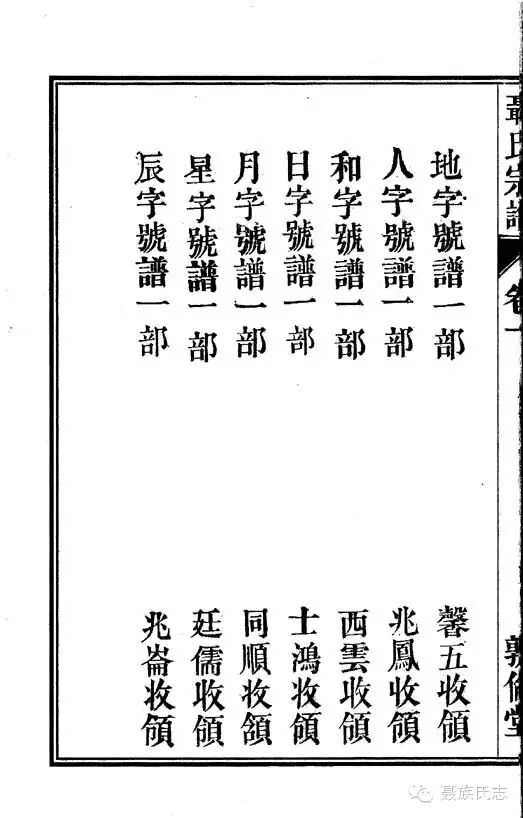 聶氏宗譜
卷一
敦倫堂
地字號譜一部 馨五收領
人字號譜一部 兆鳳收領
和字號譜一部 西雲收領
日字號譜一部 士鴻收領
月字號譜一部 同順收領
星字號譜一部 廷儒收領
辰字號譜一部 兆崙收領
聂族氏志